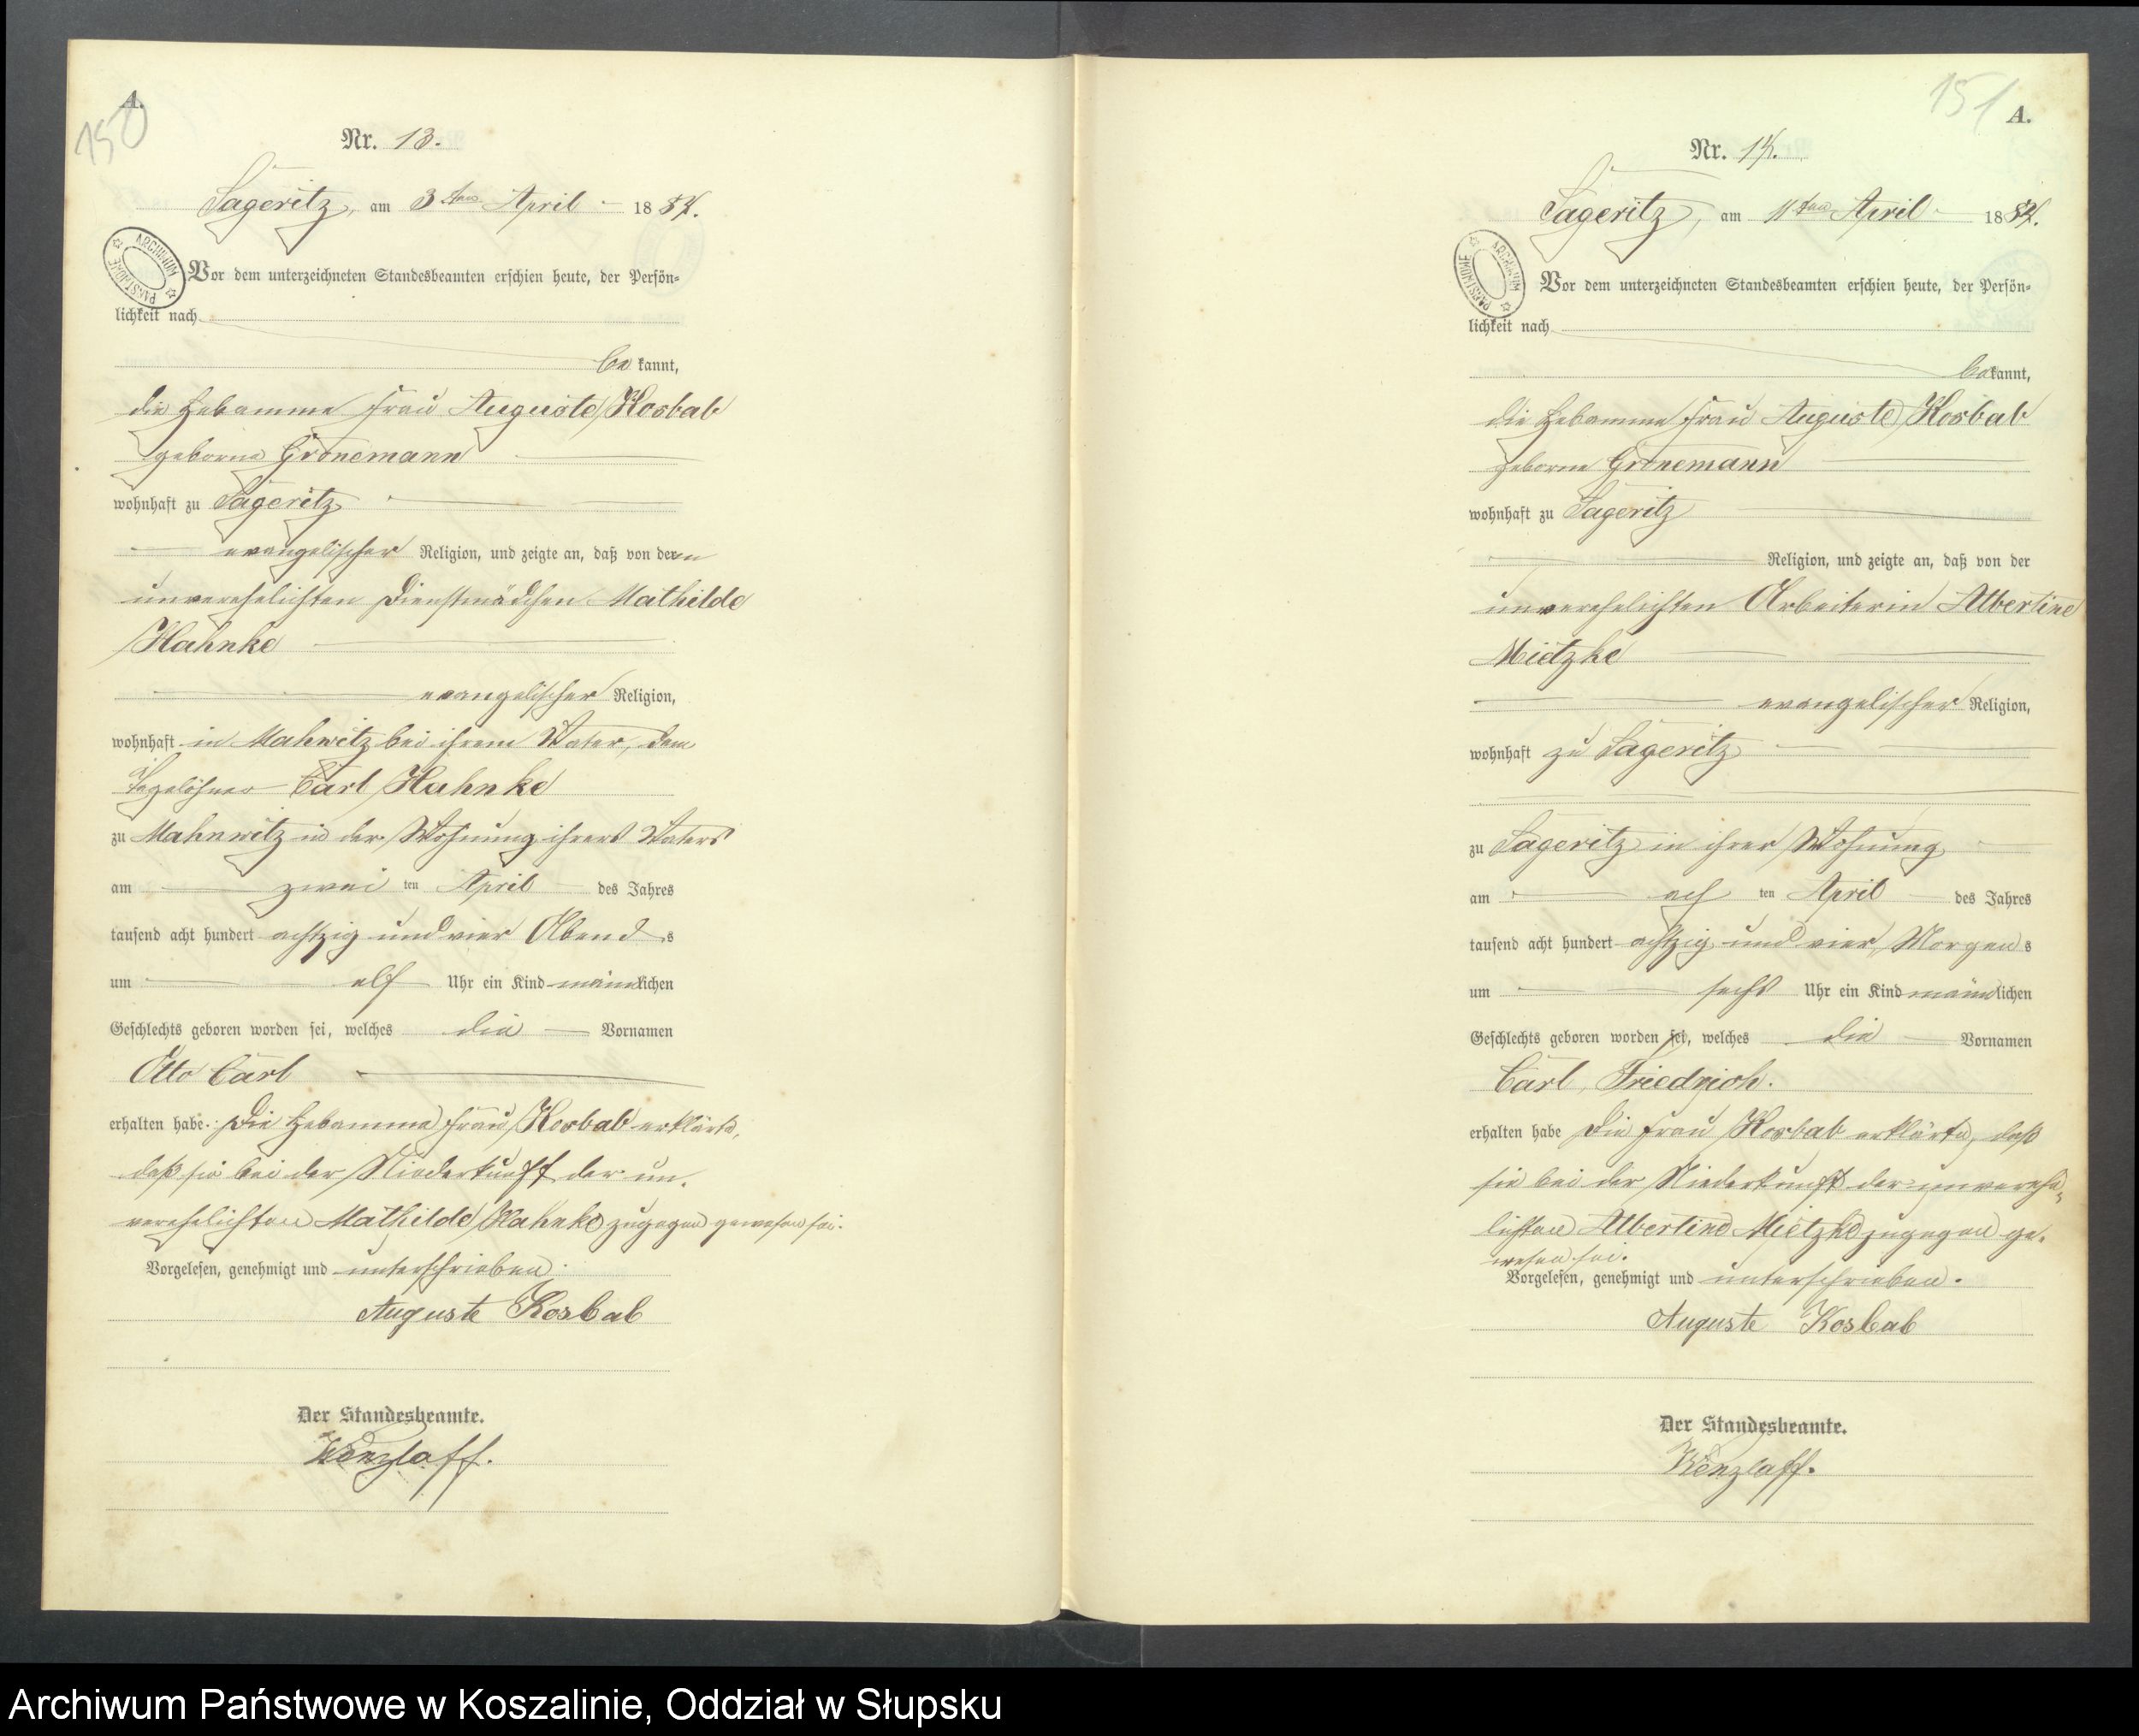 150
A.
Nr. 13.
Sageritz, am 3ten April 1884.
ARCHIWUM PAŃSTWOWE
Vor dem unterzeichneten Standesbeamten erschien heute, der Persön=
lichkeit nach
bekannt,
die Hebamme Frau Auguste Kosbab
geborne Gronemann
wohnhaft zu Sageritz
evangelischer Religion, und zeigte an, daß von der
unverehelichten Dienstmädchen Mathilde
Hahnke
evangelischer Religion,
wohnhaft in Mahnwitz bei ihrem Vater, dem
Tagelöhner Carl Hahnke
zu Mahnwitz in der Wohnung ihres Vaters
am zweiten April des Jahres
tausend acht hundert achtzig und vier Abends
um elf Uhr ein Kind männlichen
Geschlechts geboren worden sei, welches die Vornamen
Otto Carl
erhalten habe. Die Hebamme Frau Kosbab erklärte,
daß sie bei der Niederkunft der un-
verehelichten Mathilde Hahnke zugegen gewesen sei.
Vorgelesen, genehmigt und unterschrieben.
Auguste Kosbab
Der Standesbeamte.
Wenzlaff.
151
A.
Nr. 14.
Sageritz, am 11ten April 1884.
ARCHIWUM PAŃSTWOWE
Vor dem unterzeichneten Standesbeamten erschien heute, der Persön=
lichkeit nach
bekannt,
die Hebamme Frau Auguste Kosbab
geborne Gronemann
wohnhaft zu Sageritz
Religion, und zeigte an, daß von der
unverehelichten Arbeiterin Albertine
Mietzke
evangelischer Religion,
wohnhaft zu Sageritz
zu Sageritz in ihrer Wohnung
am ten April des Jahres
tausend acht hundert achtzig und vier Morgens
um sechs Uhr ein Kind männlichen
Geschlechts geboren worden sei, welches die Vornamen
Carl Friedrich.
erhalten habe Die Frau Kosbab erklärte, daß
sie bei der Niederkunft der unverehe-
lichten Albertine Mietzke zugegen ge-
wesen sei.
Vorgelesen, genehmigt und unterschrieben.
Auguste Kosbab
Der Standesbeamte.
Wenzlaff.
Archiwum Państwowe w Koszalinie, Oddział w Słupsku